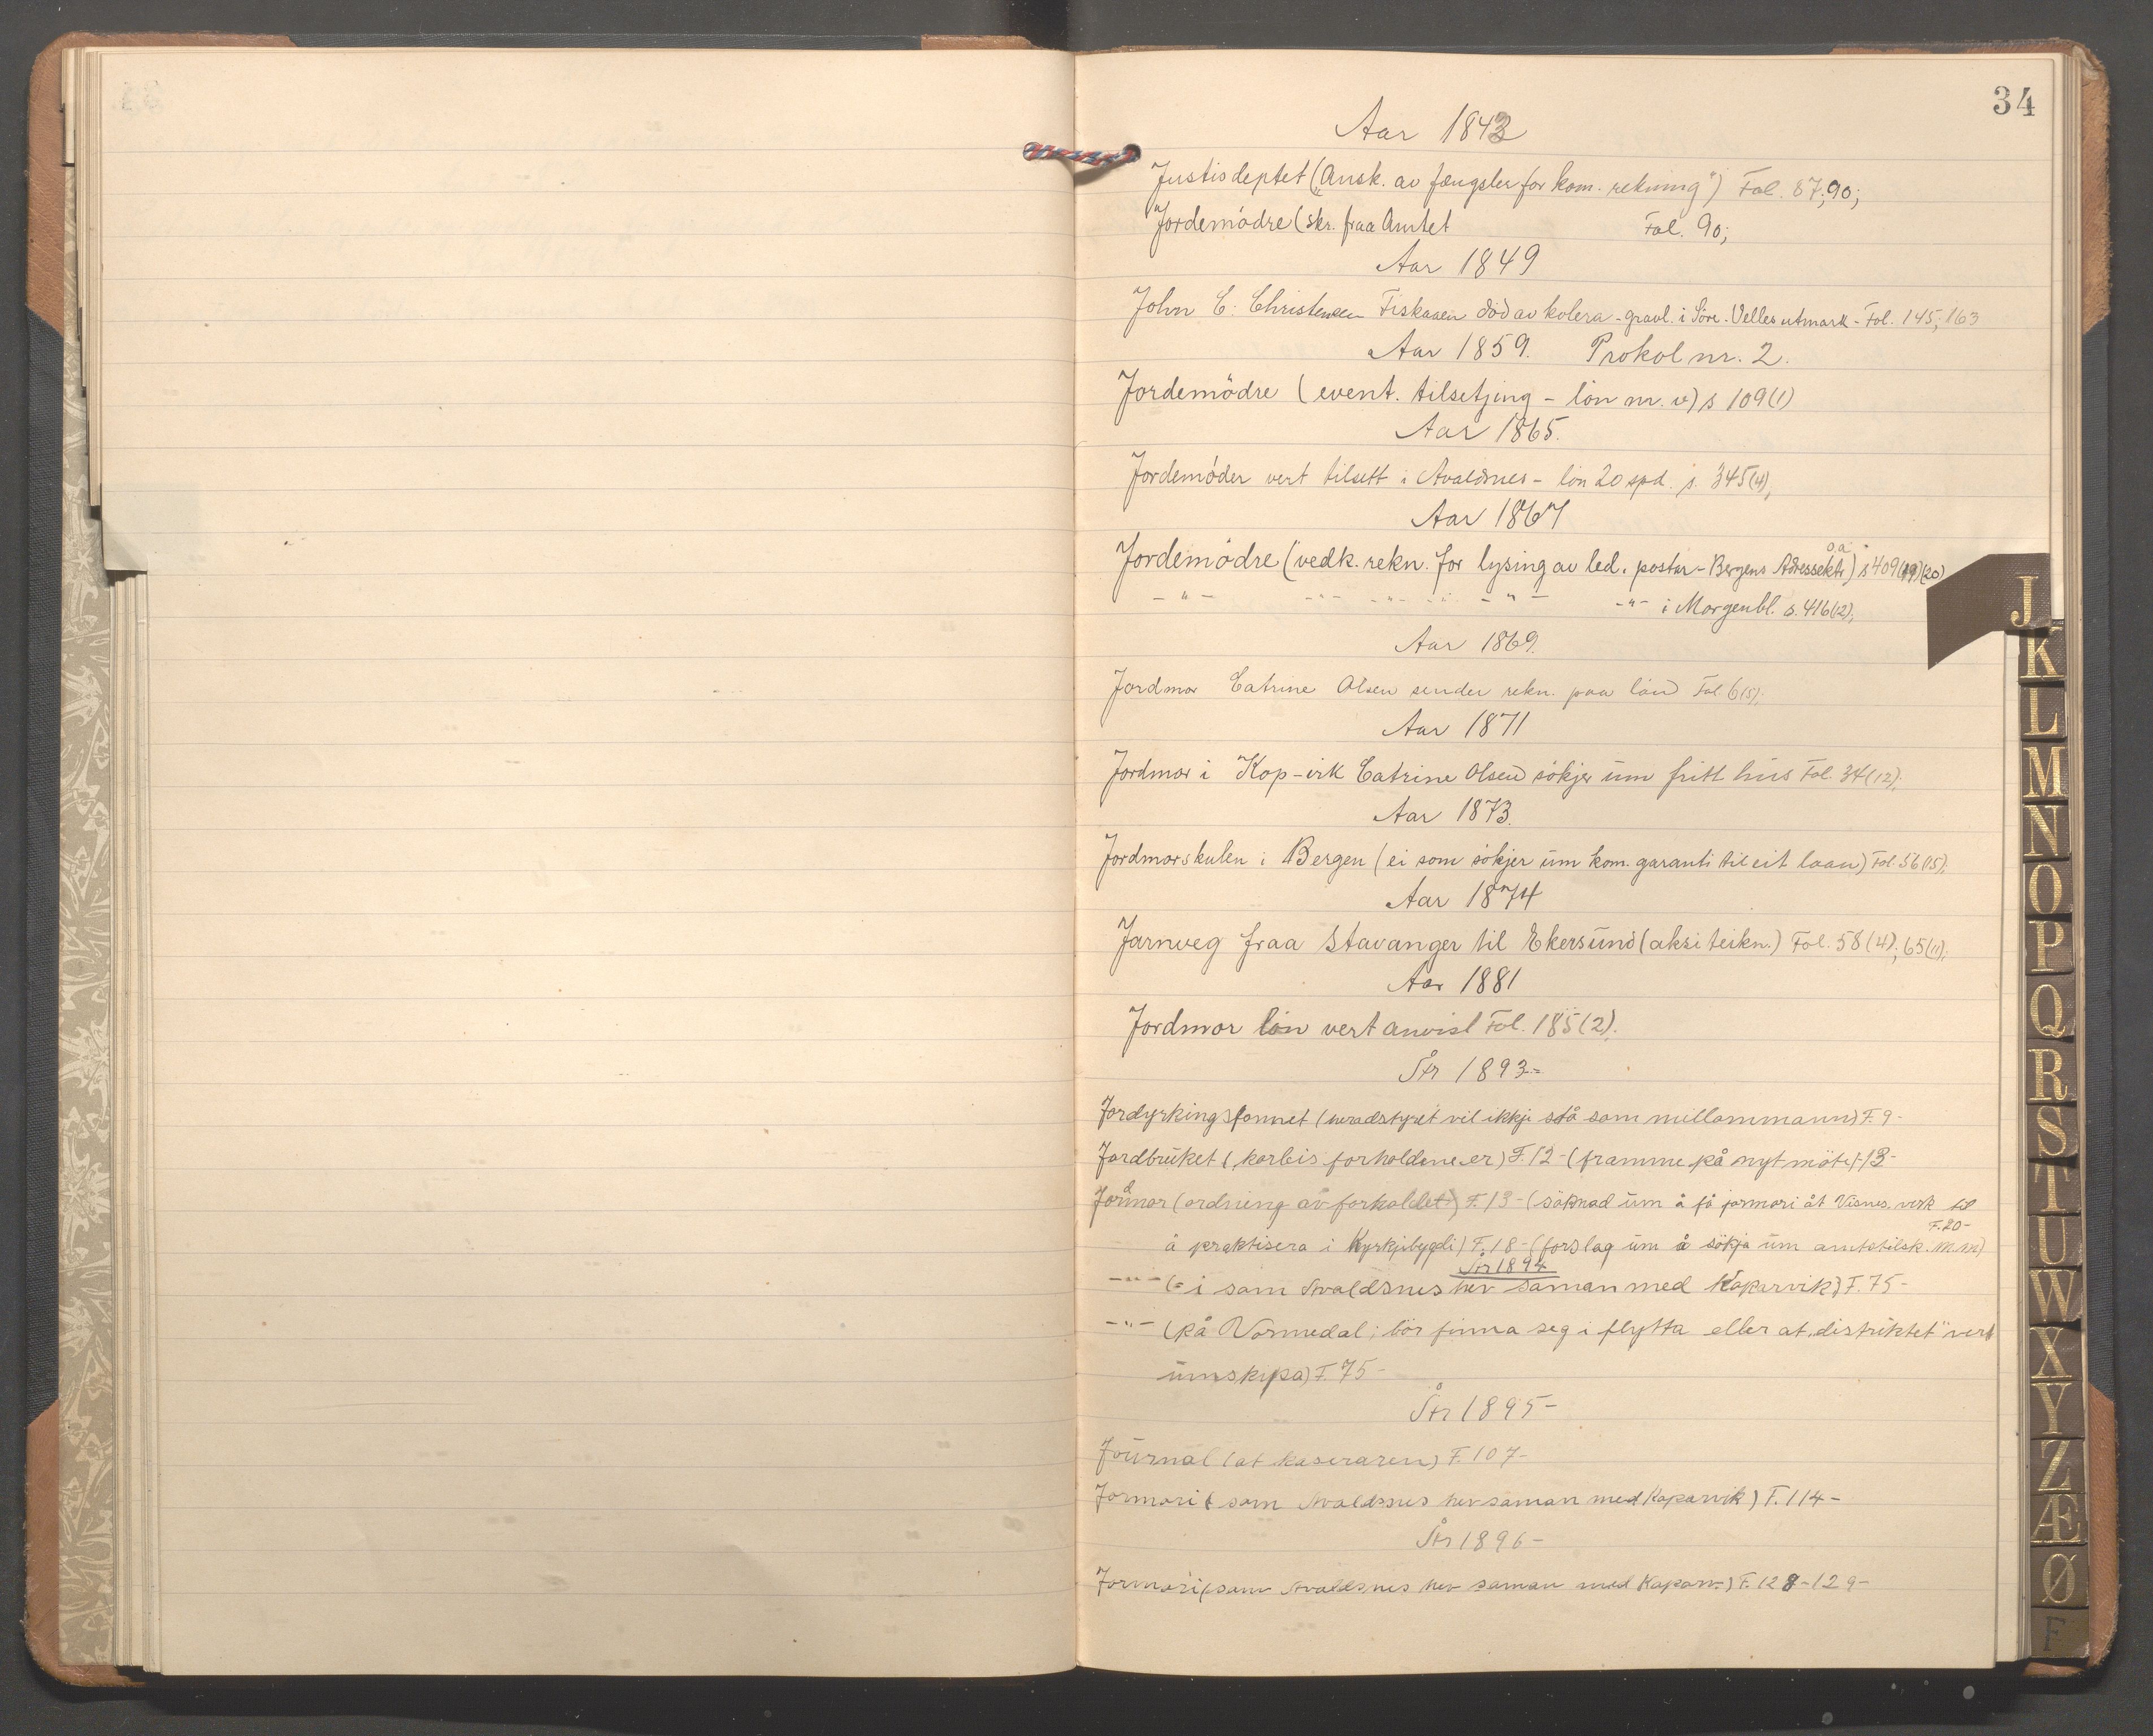 34
Aar 1843
Justisdeptet („Ansk. av fængsler for kom. rekning") Fol. 87; 90;
Jordemödre (skr. fraa Amtet Fol. 90;
Aar 1849
John C. Christensen Fiskaaen död av kolera - gravl. i Söre-Velles utmark - Fol. 145; 163
Aar 1859. Prokol nr. 2.
Jordemödre (event. tilsetjing - lön m. v) s 109(1)
Aar 1865.
Jordemöder vert tilsett i Avaldsnes - lön 20 spd. s. 345(4),
Aar 1867
Jordemödre (vedk. rekn. for lysing av led. postar - Bergens Adressektr o.a.) s 409(19)(20)
-"- -"- -"- -"- -"- -"- i Morgenbl. s. 416(12);
Aar 1869.
Jordmor Catrine Olsen sender rekn. paa lön Fol 6(5);
Aar 1871
Jordmor i Kop-vik Catrine Olsen sökjer um fritt hus Fol. 34(12);
Aar 1873.
Jordmorskulen i Bergen (ei som sökjer um kom. garanti til eit laan) Fol. 56(15);
Aar 1874
Jarnveg fraa Stavanger til Ekersund (aksi teikn.) Fol. 58(4); 65(11);
Aar 1881
Jordmor lön vert anvist Fol. 185(2).
År 1893-
Jordyrkingsfonnet (heradstyret vil ikkje stå som millommann) F. 9-
Jordbruket (korleis forholdene er) F. 12- (framme på nyt möte)-13-
Jordmor (ordning av forholdet) F. 13- (söknad um å få jormori åt Visnes verk til
å praktisera i Kyrkjebygdi) F. 18- (forslag um å sökja um amtstilsk. m.m) F. 20-
År 1894
-"- (- i som Avaldsnes hev saman med Kopervik) F. 75-
-"- (på Vormedal; bör finna seg i flytta eller at „distriktet" vert
umskipa) F. 75-
År 1895-
Journal (at kaseraren) F. 107-
Jormori (som Avaldsnes hev saman med Kopervik) F. 114-
År 1896-
Jormori (som Avaldsnes hev saman med Koparv.) F. 128-129-
J
K
L
M
N
O
P
Q
R
S
T
U
W
X
Y
Z
Æ
Ø
F